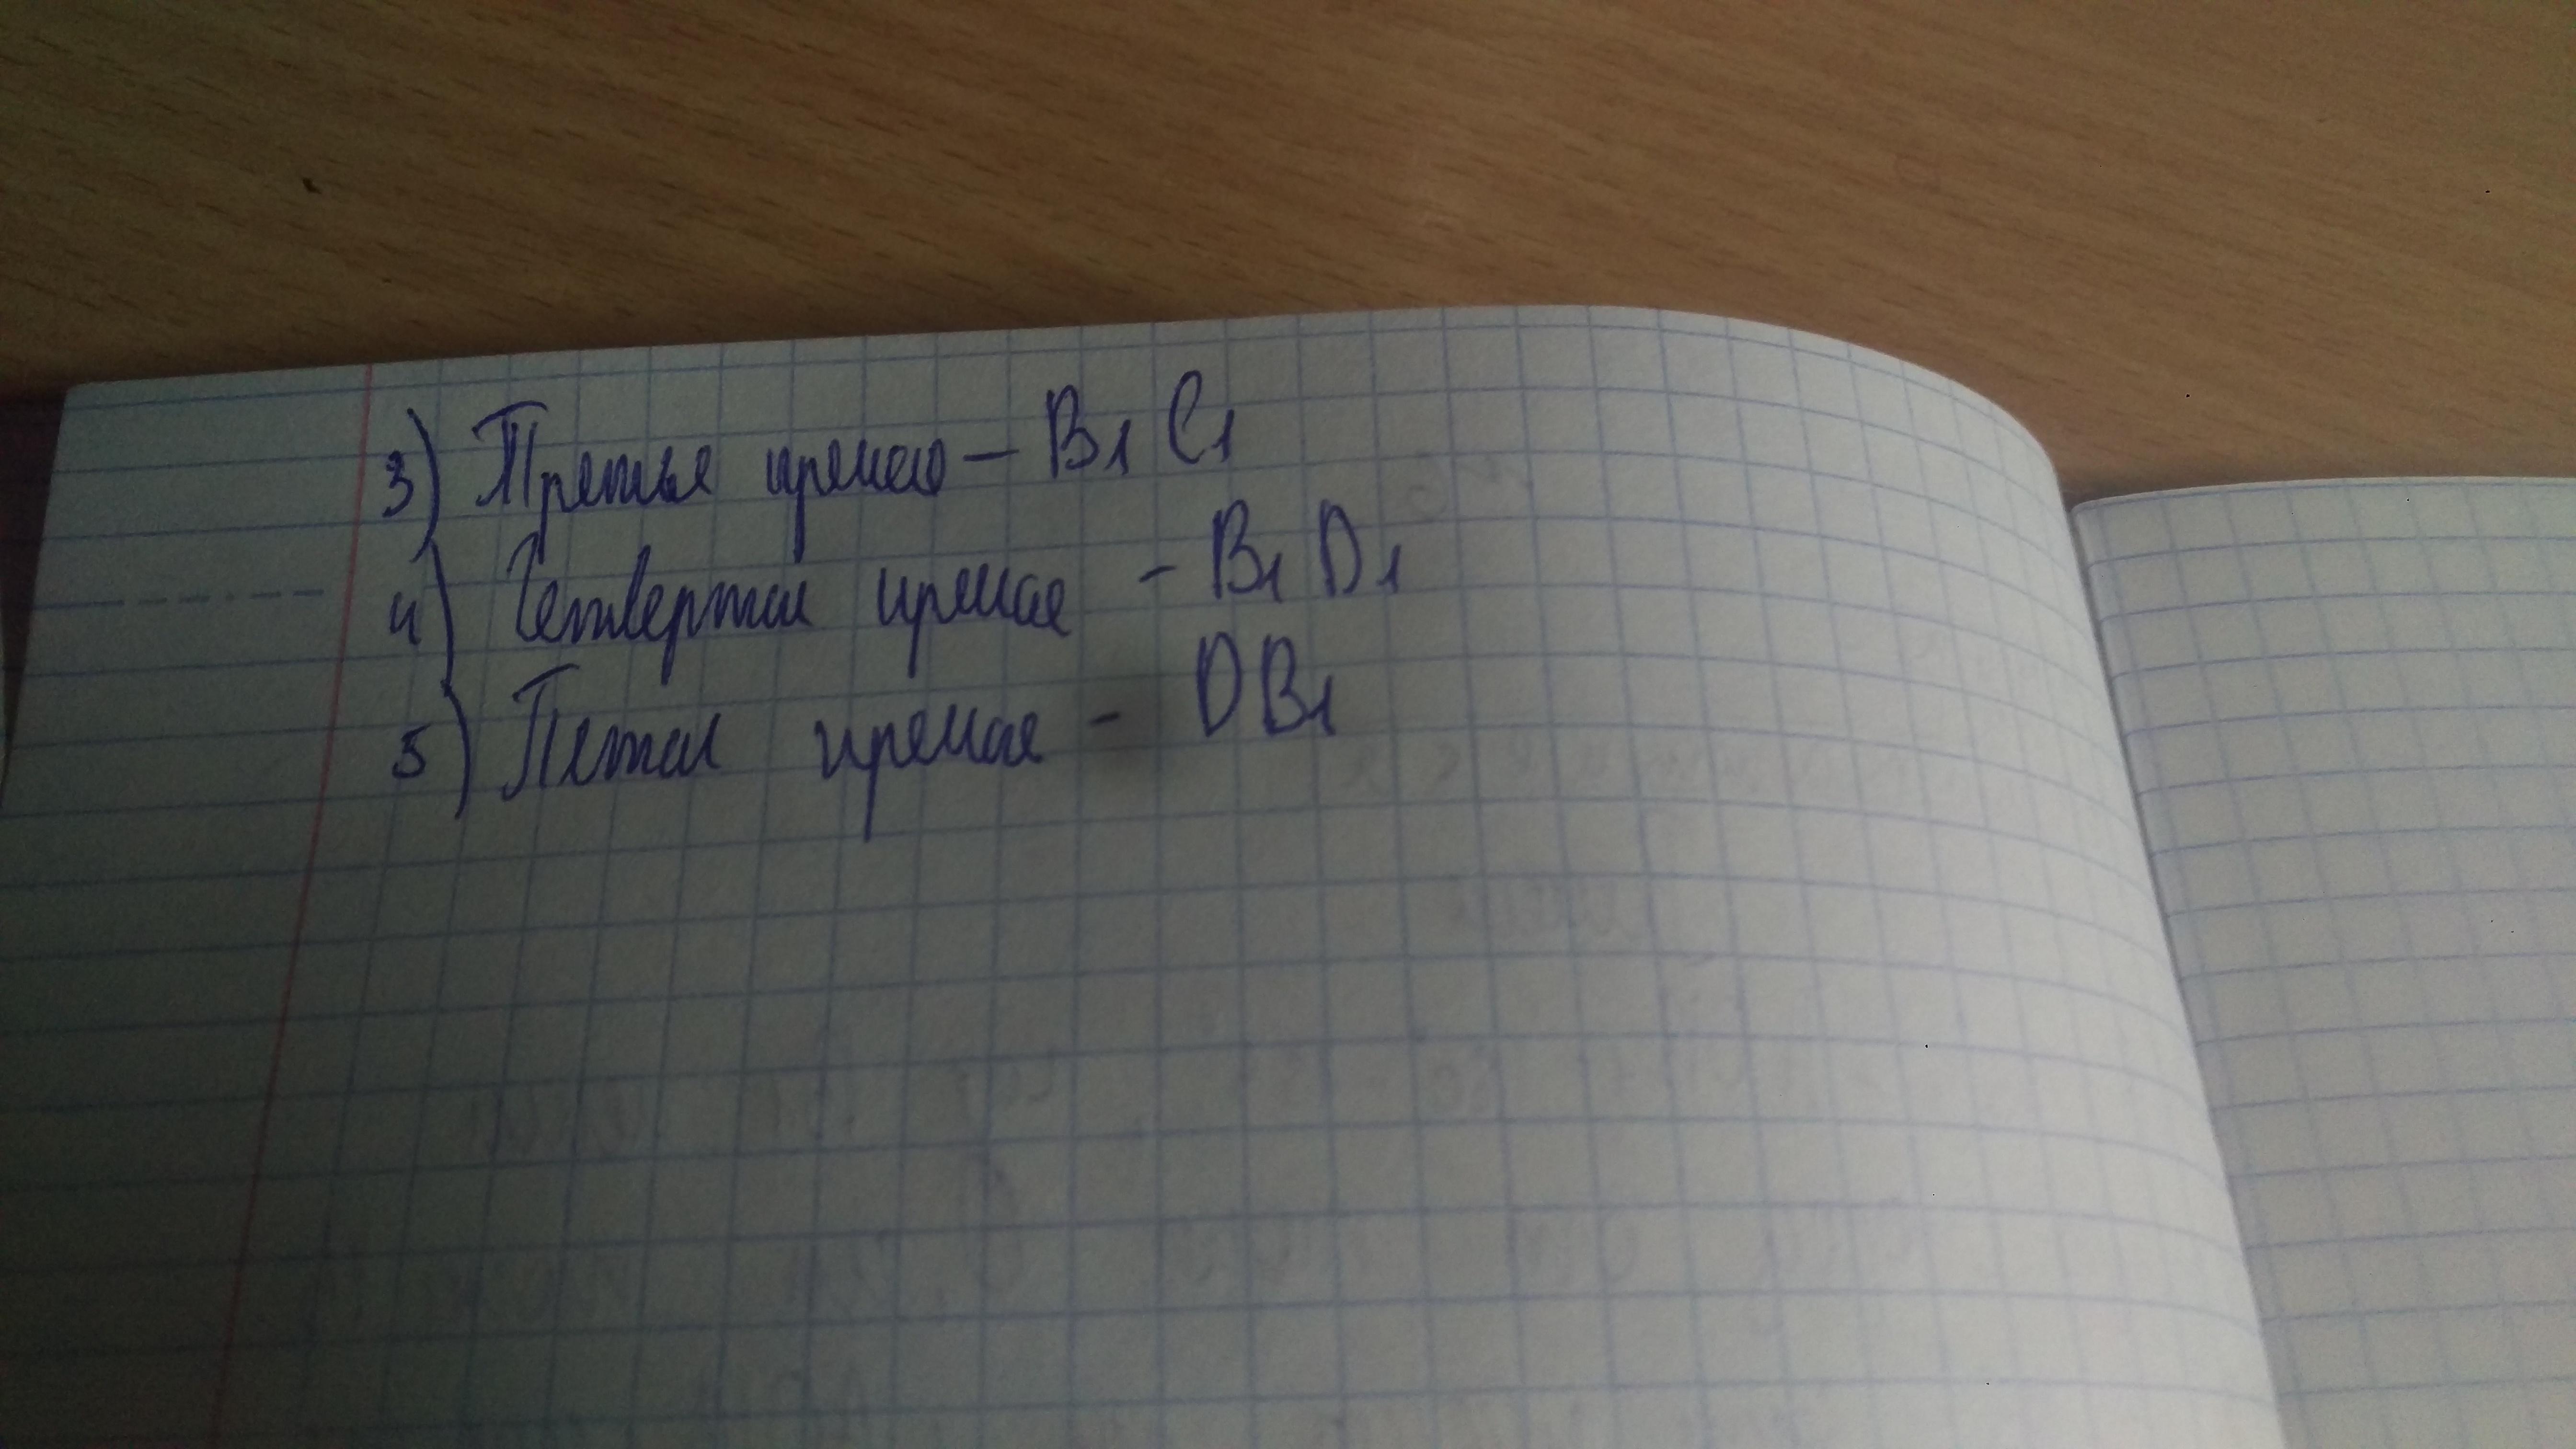 3) Третья прямая – B₁ C₁
4) Четвертая прямая – B₁ D₁
5) Пятая прямая – DB₁